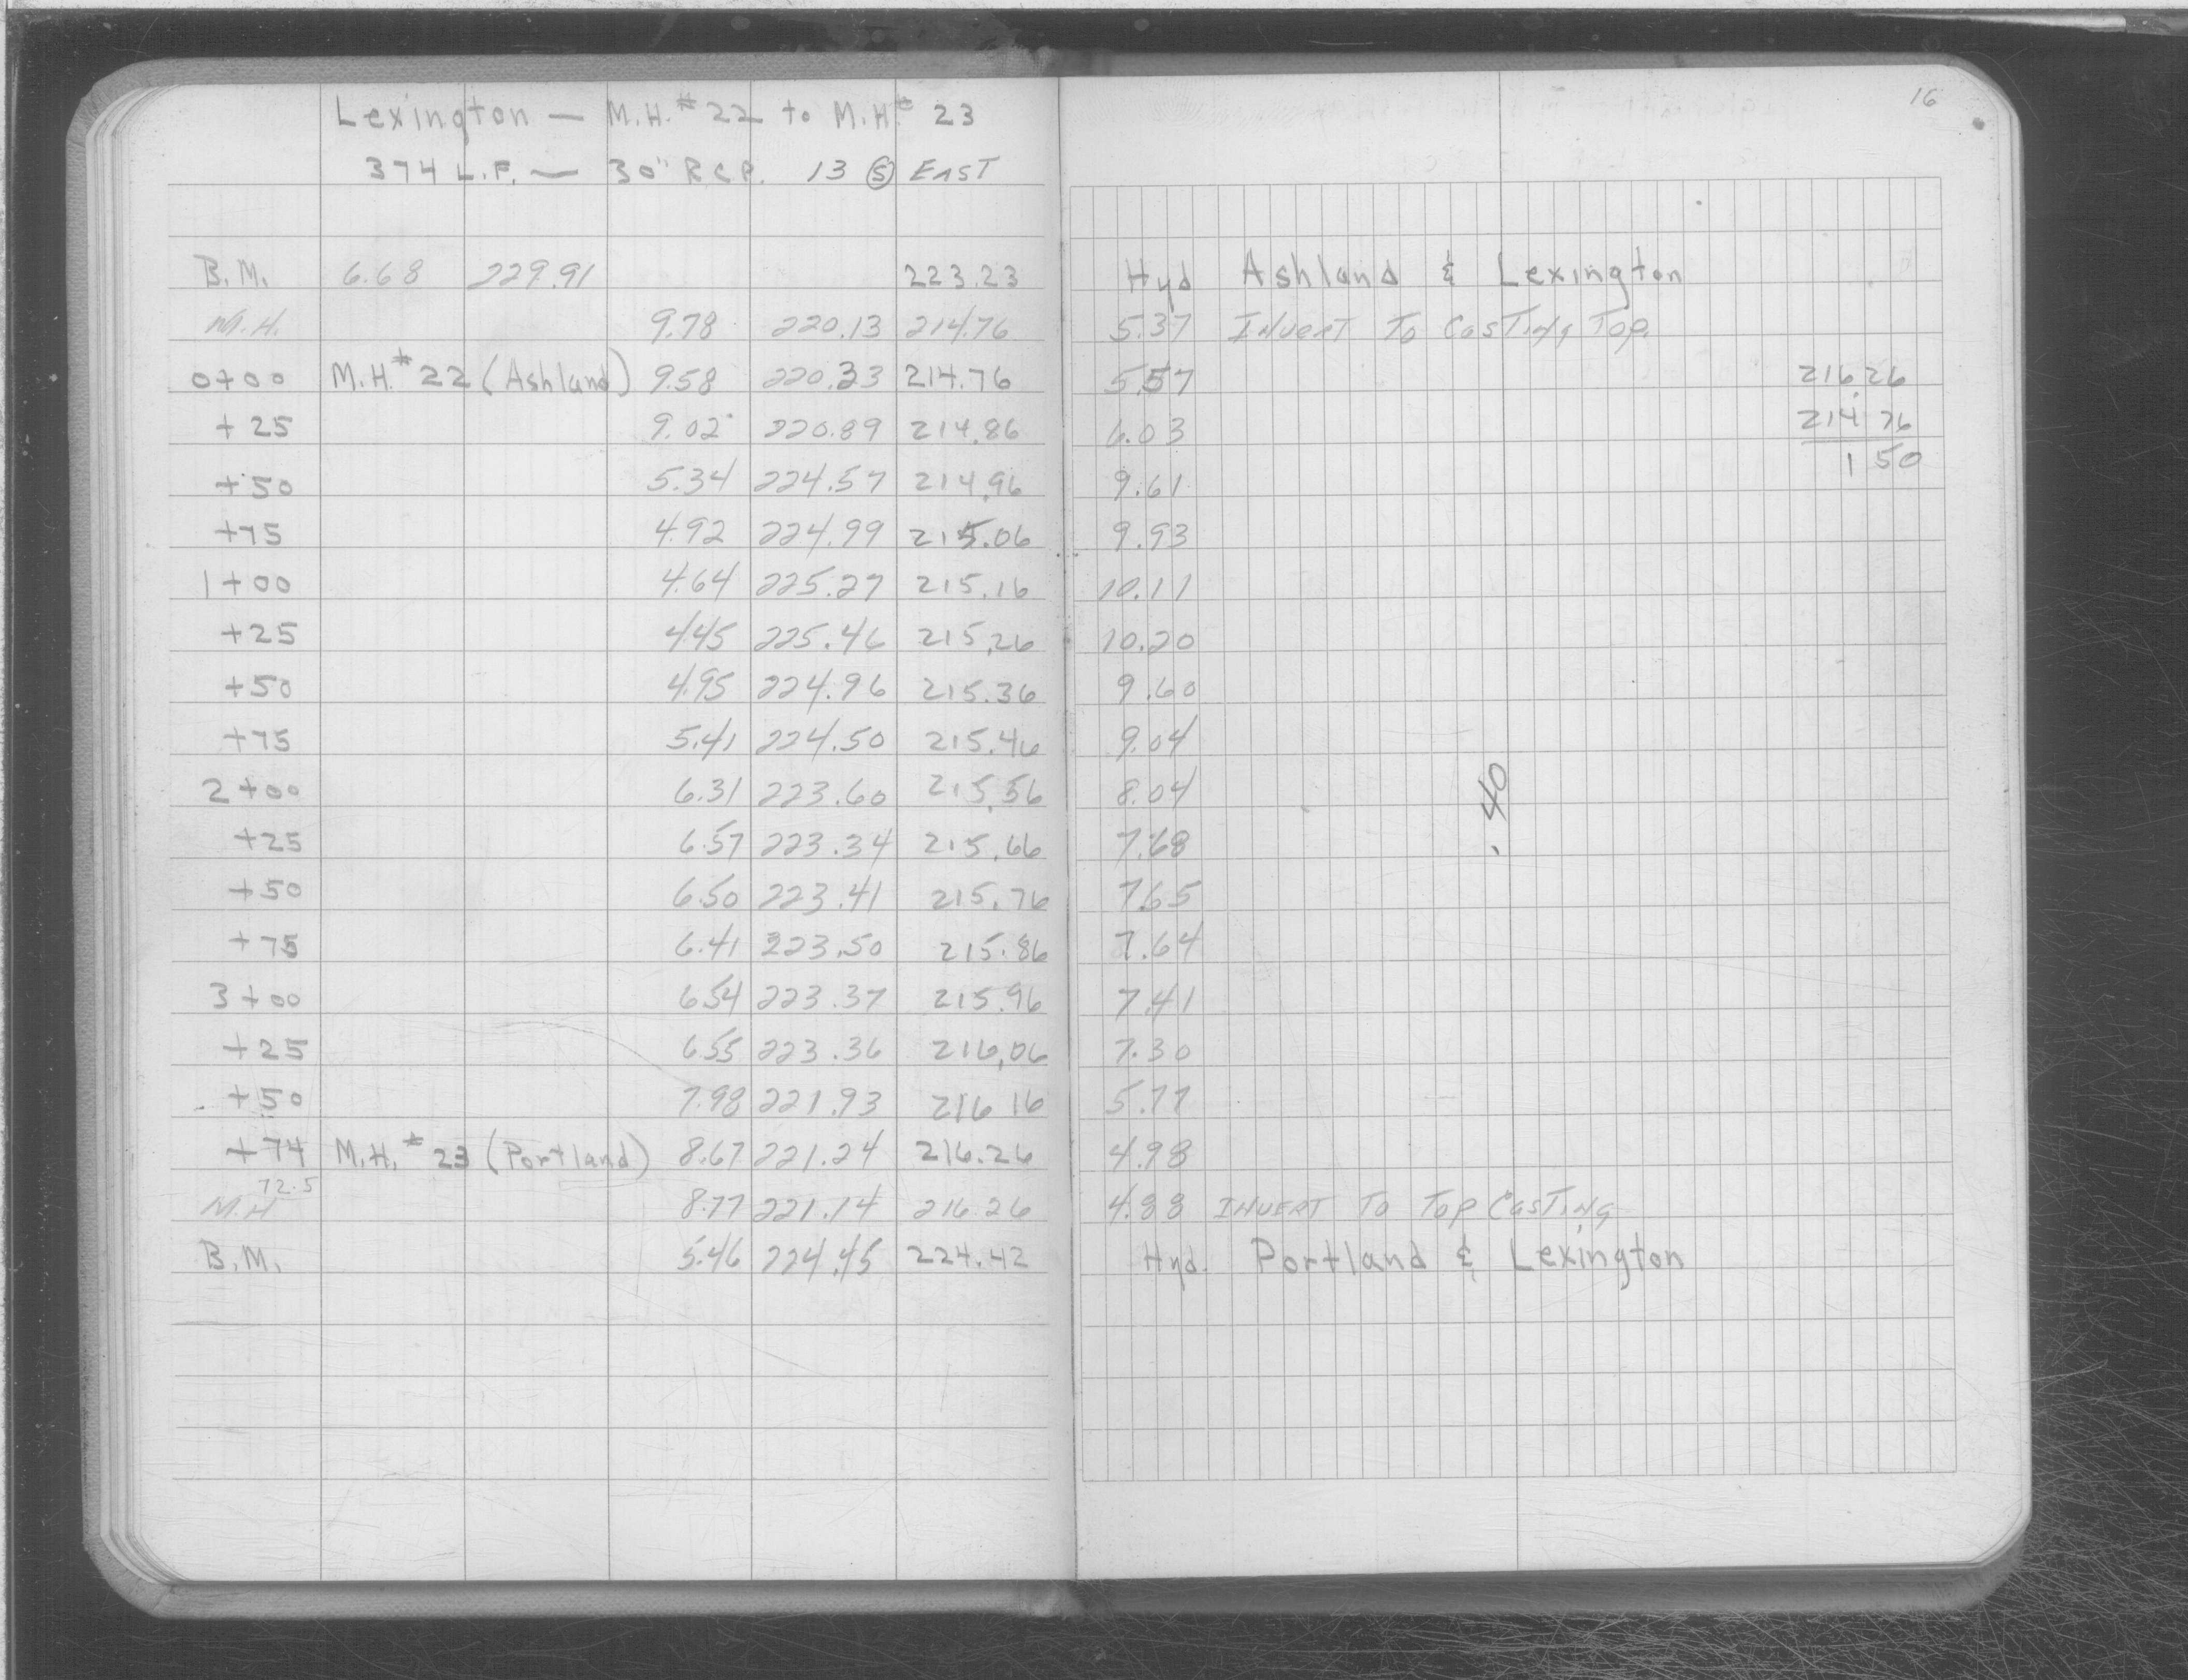 16
Lexington — M.H.# 22 to M.H.# 23
374 L.F. — 30" R.C.P. 13 Ⓢ EAST
B.M. 6.68 229.91 223.23 Hyd Ashland & Lexington
M.H. 9.78 220.13 214.76 5.37 INVERT TO CASTING TOP.
0+00 M.H.# 22 (Ashland) 9.58 220.33 214.76 5.57 216.26
+25 9.02 220.89 214.86 6.03 214 76
+50 5.34 224.57 214.96 9.61 1 50
+75 4.92 224.99 215.06 9.93
1+00 4.64 225.27 215.16 10.11
+25 4.45 225.46 215.26 10.20
+50 4.95 224.96 215.36 9.60
+75 5.41 224.50 215.46 9.04
2+00 6.31 223.60 215.56 8.04 .40
+25 6.57 223.34 215.66 7.68
+50 6.50 223.41 215.76 7.65
+75 6.41 223.50 215.86 7.64
3+00 6.54 223.37 215.96 7.41
+25 6.55 223.36 216.06 7.30
+50 7.98 221.93 216 16 5.77
+74 M.H.# 23 (Portland) 8.67 221.24 216.26 4.98
72.5
M.H 8.77 221.14 216.26 4.88 INVERT TO TOP CASTING
B.M. 5.46 224.45 224.42 Hyd. Portland & Lexington